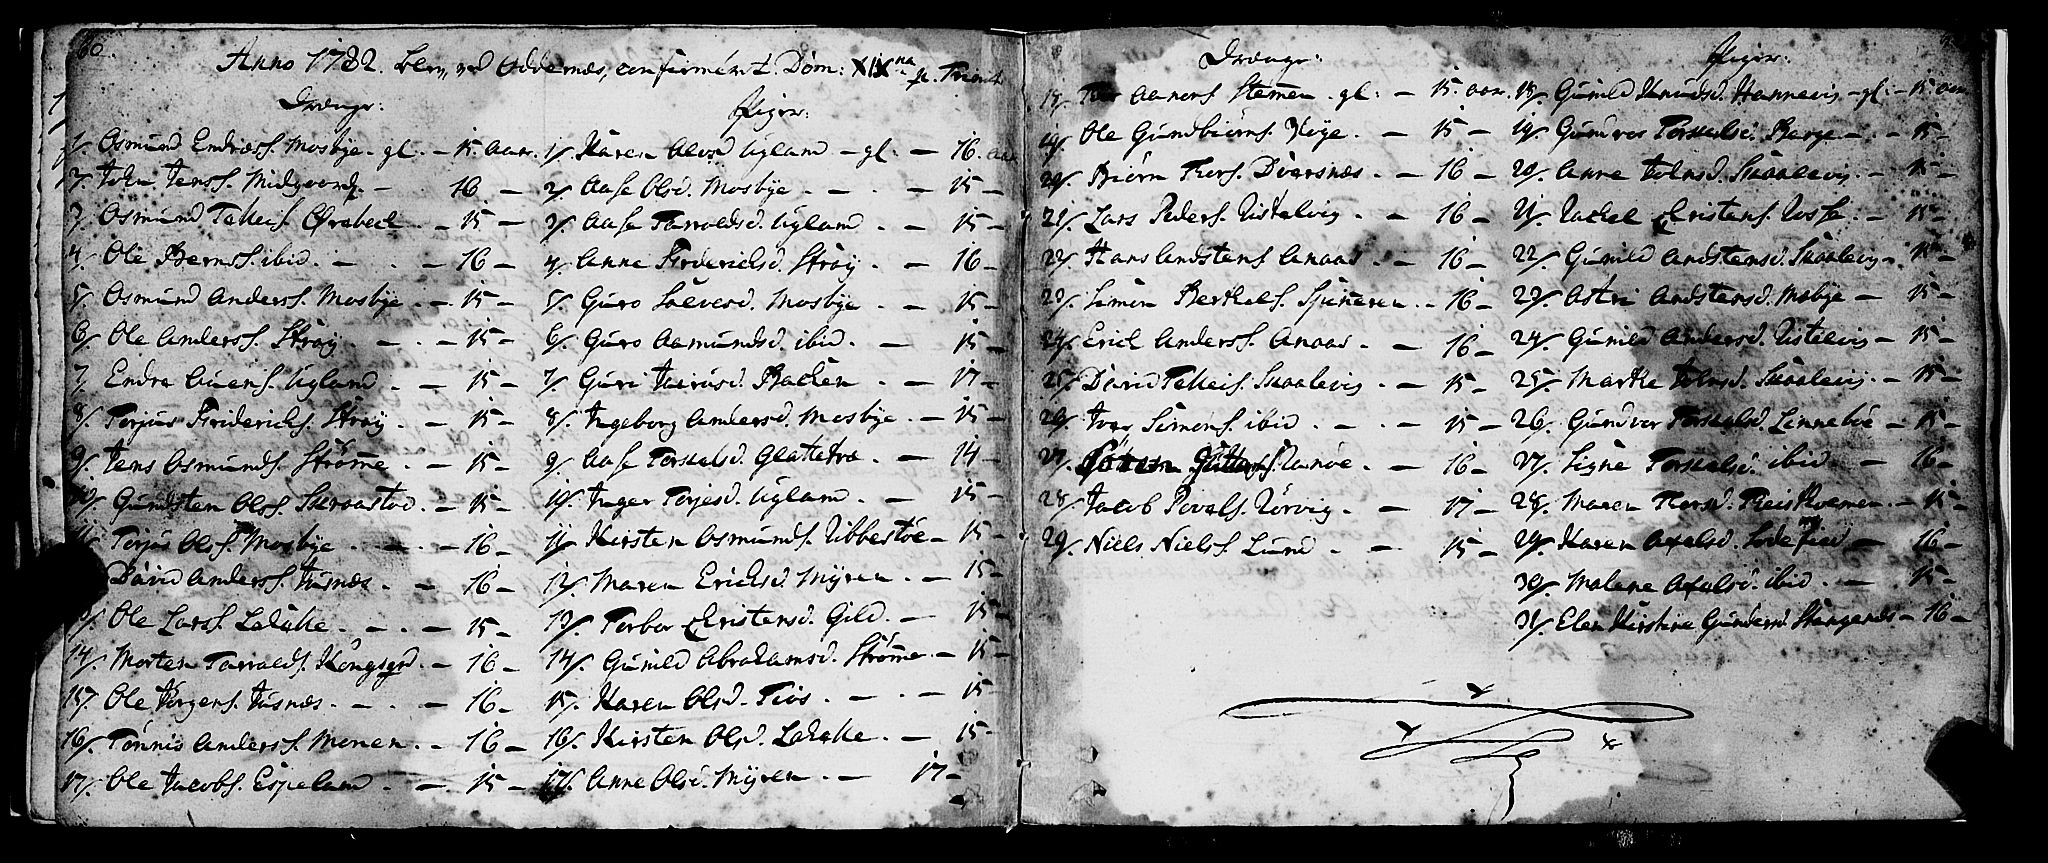 60.
Anno 1782. blev, ved Oddernæs, confirmeret. Dom: XIX na p. Trinit
Drænge:
1/. Osmund Endress. Mosbye. gl. – 15. aar.
2/. John Jenss. Midgaard. – 16 –
3/. Osmund Tellefs. Ørebeck – 15 –
4/. Ole Bernss. ibid. – 16 –
5/. Osmund Anderss. Mosbye. – 15 –
6/. Ole Anderss. Stray – 15 –
7/. Endre Auens. Ugland. – 15 –
8/. Torjus Friderichs. Stray – 15 –
9/. Jens Osmunds. Strømme. – 15 –
10/. Gundsten Olss. Skraastad – 15 –
11/. Torjus Olss. Mosbye – 16 –
David Anderss. Justnæs – 16 –
13/. Ole Larss. Lahelle. – 15 –
14/. Morten Tarralds. Kongsgrd. – 16 –
15/. Ole Jørgens. Justnæs. – 16 –
16/. Tønnis Anderss. Monen. – 16 –
17/. Ole Jacobs. Espeland. – 15 –
Piger:
1/. Karen Olsd Ugland – gl: – 16. aar
2/. Aase Olsd. Mosbye – 15 –
3/. Aase Tarraldsd. Ugland – 15 –
4/. Anne Friderichsd. Stray. – 16 –
5/. Guro Salvesd. Mosbye – 15 –
6/. Guro Aamundsd. ibid. – 15 –
7/. Guri Jacobsd. Backen – 17 –
8/. Ingeborg Andersd. Mosbye. – 15 –
9/. Aase Torkelsd. Glattetræ. – 14 –
10/. Inger Torjesd. Ugland. – 15 –
11/. Kirsten Osmunds. Ubbestøe – 15 –
12/. Maren Erichsd. Myren. – 15 –
13/. Torbor Christensd. Gild. – 15 –
14/. Gunild Abrahamsd. Strømme. – 15 –
15/. Karen Olsd. Tios. – 15 –
16/. Kirsten Olsd. Lahelle. – 15 –
17/. Anne Olsd. Myren. – 17 –
Drænge:
18/. Aanens. Stemmen. gl: – 15. aar.
19/. Ole Gundbiørns. Kige. – 15 –
20/. Biørn Thors. Dversnæs. – 16 –
21/. Lars Peders. Usthalvig. – 16 –
22/. Hans Andstens. Anaas. – 16 –
23/. Simon Berthels. – 16 –
24/. Erich Anderss. Anaas – 16 –
25/. David Tellefs. Skaalevig. – 15 –
26/. Iver Simons. ibid. – 15 –
27. Randøe. – 16 –
28/. Jacob Povels. Korsvig. – 17 –
29/. Niels Nielss. Lund. – 15 –
Piger:
18/. Gunild Knudsd. Hannevig – gl: – 15 aar
19/. Gundvor Torkelsd. Berge – 15 –
20/. Anne Johnsd. Skaalevig. – 15 –
21/. Rachel Christens. Rosse. – 15 –
22/. Gunild Andstensd. Skaalevig. – 15 –
23/. Astri Andstensd. Mebye – 15 –
24/. Gunild Andersd. Ustelvig – 15 –
25/. Marthe Johnsd. Skaalevig. – 15 –
26. Gundvor Torkelsd. Linnebøe – 15 –
27/. Signe Torkelsd. ibid – 16 –
28. Maren Thorsd. – 15 –
29/. Karen Axelsd. Lodefied – 16 –
30/. Malene Axelsd. ibid. – 15 –
31/. Elen Kirstine Gundersd. Stangenæs – 16 –